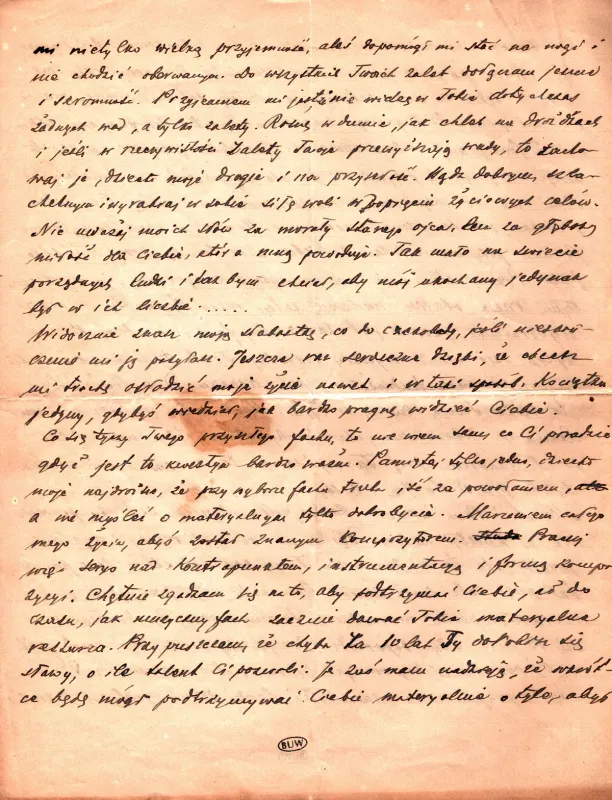 mi nietylko wielką przyjemność, aleś dopomógł mi stać na nogi i
nie chodzić oberwanym. Do wszystkich Twoich zalet dołączam jeszcze
i skromność. Przyjemnem mi jest, nie widzę w Tobie dotychczas
żadnych wad, a tylko zalety. Rosnę w dumie, jak chleb na drożdżach
i jeśli w rzeczywistości zalety Twoje przewyższają wady, to zacho-
waj je, dziecko moje drogie i na przyszłość. Bądź dobrym, szla-
chetnym i wyrabiaj w sobie siłę woli w dopięciu życiowych celów.
Nie uważaj moich słów za morały starego ojca, lecz za głęboką
miłość dla Ciebie, która mną powoduje. Tak mało na świecie
porządnych ludzi i tak bym chciał, aby mój ukochany jedynak
był w ich liczbie.....
Widocznie znasz moją słabostkę, co do czekolady, jeśli
mi ją posyłasz. Jeszcze raz serdeczne dzięki, że chcesz
mi trochę osłodzić moje życie nawet i w taki sposób. Kociątko
jedyny, gdybyś wiedział, jak bardzo pragnę widzieć Ciebie.
Co się tyczy Twego przyszłego fachu, to nie wiem sam, co Ci poradzić
gdyż jest to kwestya bardzo ważna. Pamiętaj tylko jedno, dziecko
moje najdroższe, że przy wyborze fachu trzeba iść za powołaniem,
a nie myśleć o materyalnym tylko dobrobycie. Marzeniem całego
mego życia, abyś został znanym kompozytorem. Pracuj
więc seryo nad kontrapunktem, instrumentacją i formą kompo-
zycyi. Chętnie zgadzam się na to, aby podtrzymać Ciebie, aż do
czasu, jak muzyczny fach zacznie dawać Tobie materyalne
. Przypuszczam, że chyba za 10 lat Ty dobijesz się
sławy, o ile talent Ci pozwoli. Ja zaś mam nadzieję, że wkrót-
ce będę mógł podtrzymywać Ciebie materyalnie o tyle, abyś
BUW